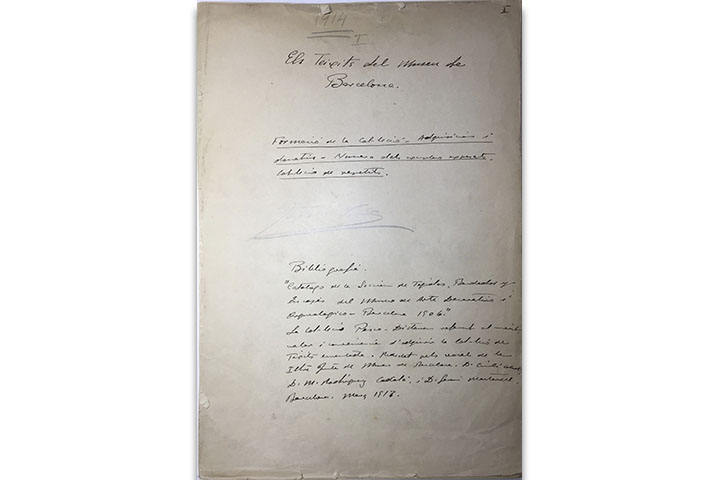 I
1914
I
Els Teixits del Museu de
Barcelona.
Formació de la Col·lecció - Adquisicions i
donatius - Numero dels exposats.
Col·lecció de vestits.
Bibliografia.
"Catálogo de la Sección de Tejidos, Bordados y
Encajes del Museo de Arte Decorativo y
Arqueologico - Barcelona 1906."
La Col·lecció Pascó - Dictamen referent al
valor i conveniencia d'adquirir la Col·lecció de
Teixits . Redactat pels vocals de la
Iltre Junta de Museus de Barcelona. D.
D. M. Rodríguez Codolá, i D.
Barcelona. Març 1913.